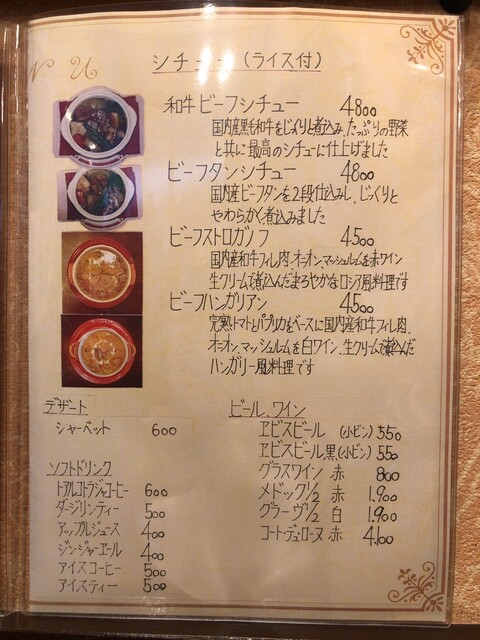 NU
シチュー (ライス付)
和牛ビーフシチュー 4800
国内産黒毛和牛をじっくりと煮込み、たっぷりの野菜
と共に最高のシチューに仕上げました
ビーフタンシチュー 4800
国内産ビーフタンを2段仕込みし、じっくりと
やわらかく煮込みました
ビーフストロガノフ 4500
国内産和牛フィレ肉、オニオン、マッシュルームを赤ワイン
生クリームで煮込んだまろやかなロシア風料理です
ビーフハンガリアン 4500
完熟トマトとパプリカをベースに国内産和牛フィレ肉、
オニオン、マッシュルームを白ワイン、生クリームで煮込んだ
ハンガリー風料理です
デザート
シャーベット 600
ソフトドリンク
トアルコトラジャコーヒー 600
ダージリンティー 500
アップルジュース 400
ジンジャーエール 400
アイスコーヒー 500
アイスティー 500
ビール、ワイン
ヱビスビール (小ビン) 550
ヱビスビール 黒(小ビン) 550
グラスワイン 赤 800
メドック1/2 赤 1,900
グラーヴ1/2 白 1,900
コート・デュ・ローヌ 赤 4,100